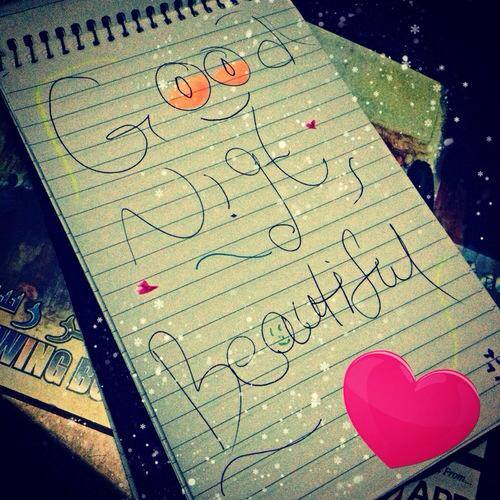 Good
Night,
Beautiful
WING B
From...